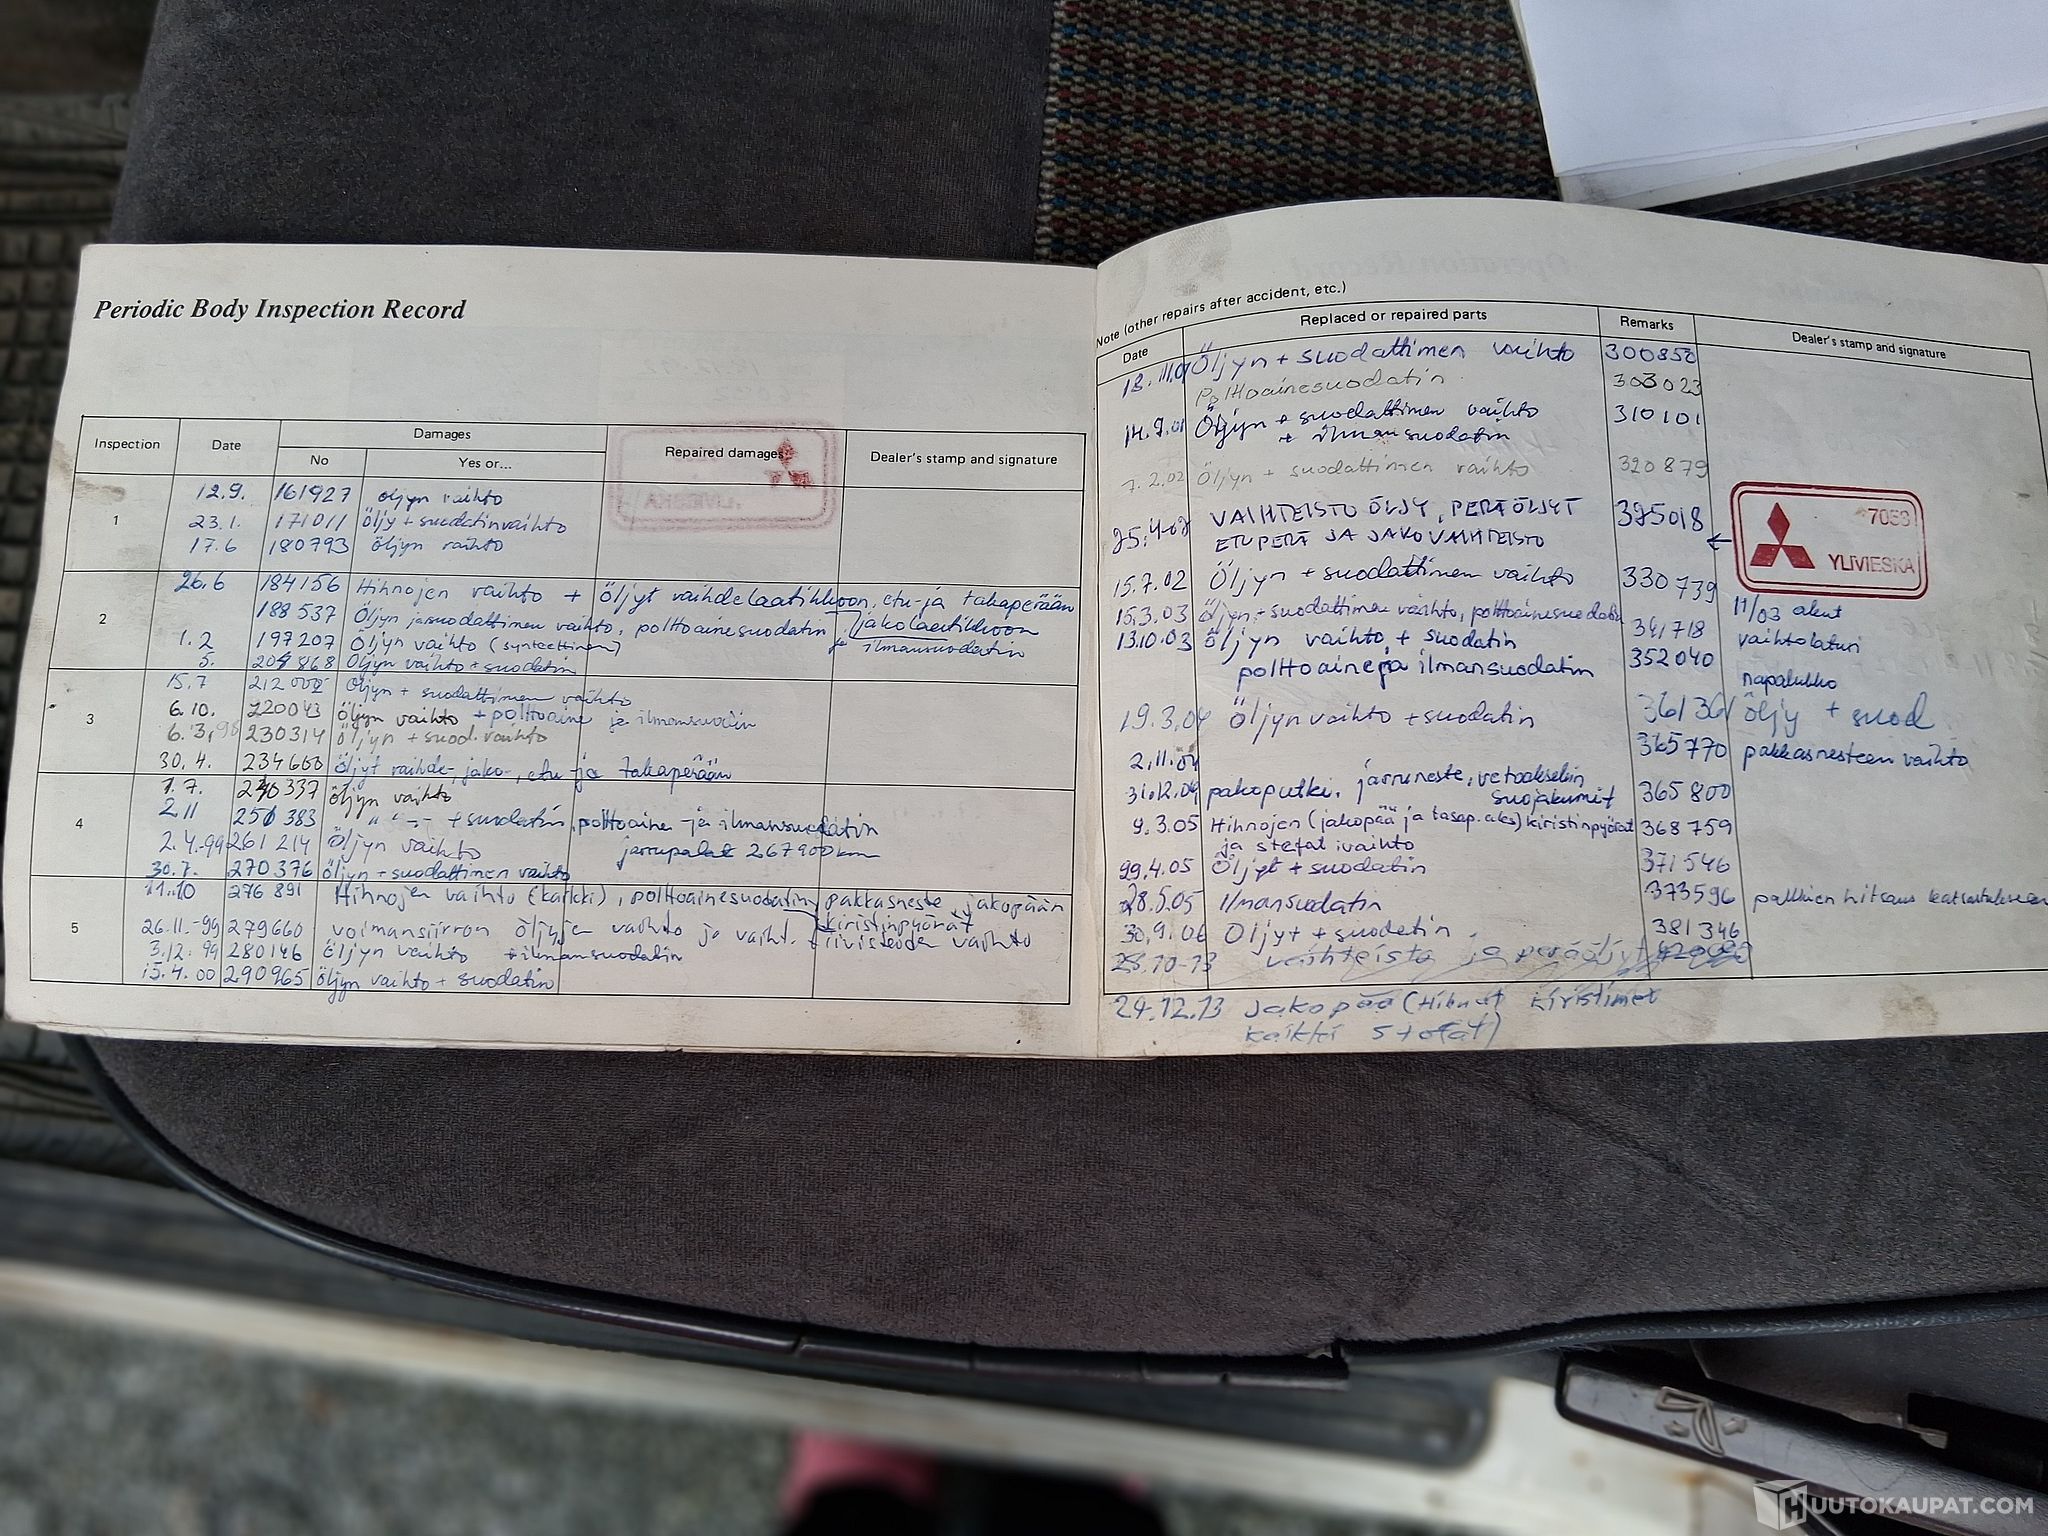 Periodic Body Inspection Record
Inspection Date Damages Repaired damages Dealer's stamp and signature
No Yes or...
1
12.9. 161927 öljyn vaihto
23.1. 171011 öljy + suodatinvaihto
17.6 180793 öljyn vaihto
2
26.6 184156 Hihnojen vaihto + öljyt vaihdelaatikkoon, etu-ja takaperään
188537 Öljyn ja suodattimen vaihto, polttoainesuodatin jakolaatikkoon
1.2 197207 Öljyn vaihto (synteettinen) ja ilmansuodatin
5. 204868 Öljyn vaihto + suodatin
3
15.7 öljyn + suodattimen vaihto
6.10. 220043 öljyn vaihto + polttoaine ja ilmansuodin
6.3.98 230314 öljyn + suod. vaihto
30.4. 234600 öljyt vaihde-, jako-, etu- ja takaperään
4
1.7. 240337 öljyn vaihto
2.11 250383 " " - + suodatin, polttoaine - ja ilmansuodatin
2.4.99 261214 Öljyn vaihto jarrupalat 267900km
30.7. 270376 öljyn + suodattimen vaihto
5
11.10 276891 Hihnojen vaihto (kaikki), polttoainesuodatin, pakkasneste, jakopään
kiristinpyörät
26.11.-99 279660 voimansiirron öljyjen vaihto ja vaiht. tiivisteiden vaihto
3.12.99 280146 öljyn vaihto + ilmansuodatin
15.4.00 290965 öljyn vaihto + suodatin
Note (other repairs after accident, etc.)
Date Replaced or repaired parts Remarks Dealer's stamp and signature
Öljyn + suodattimen vaihto 300850
Polttoainesuodatin 303023
14.9.01 Öljyn + suodattimen vaihto 310101
+ ilmansuodatin
7.2.02 Öljyn + suodattimen vaihto 320879
25.4-02 VAIHTEISTO ÖLJY, PERÄÖLJYT 325018
ETUPERÄ JA JAKOVAIHTEISTO
7053
YLIVIESKA
15.7.02 Öljyn + suodattimen vaihto 330739
15.3.03 öljyn + suodattimen vaihto, polttoainesuodatin 341718 11/03 akut
13.10.03 öljyn vaihto + suodatin 352040 vaihtolaturi
polttoaine ja ilmansuodatin napalukko
19.3.04 Öljyn vaihto + suodatin 361361 öljy + suod
2.11.04 365770 pakkasnesteen vaihto
31.12.04 pakoputki, jarruneste, vetoakselin 365800
suojakumit
9.3.05 Hihnojen (jakopää ja tasap.aks) kiristinpyörät 368759
ja stefat vaihto
29.4.05 Öljyt + suodatin 371546
28.5.05 Ilmansuodatin 373596 palkkien hitsaus
30.9.06 Öljyt + suodatin 381346
28.10-13 vaihteisto ja peräöljyt
24.12.13 Jakopää (Hihnat kiristimet
kaikki stefat)
HUUTOKAUPAT.COM